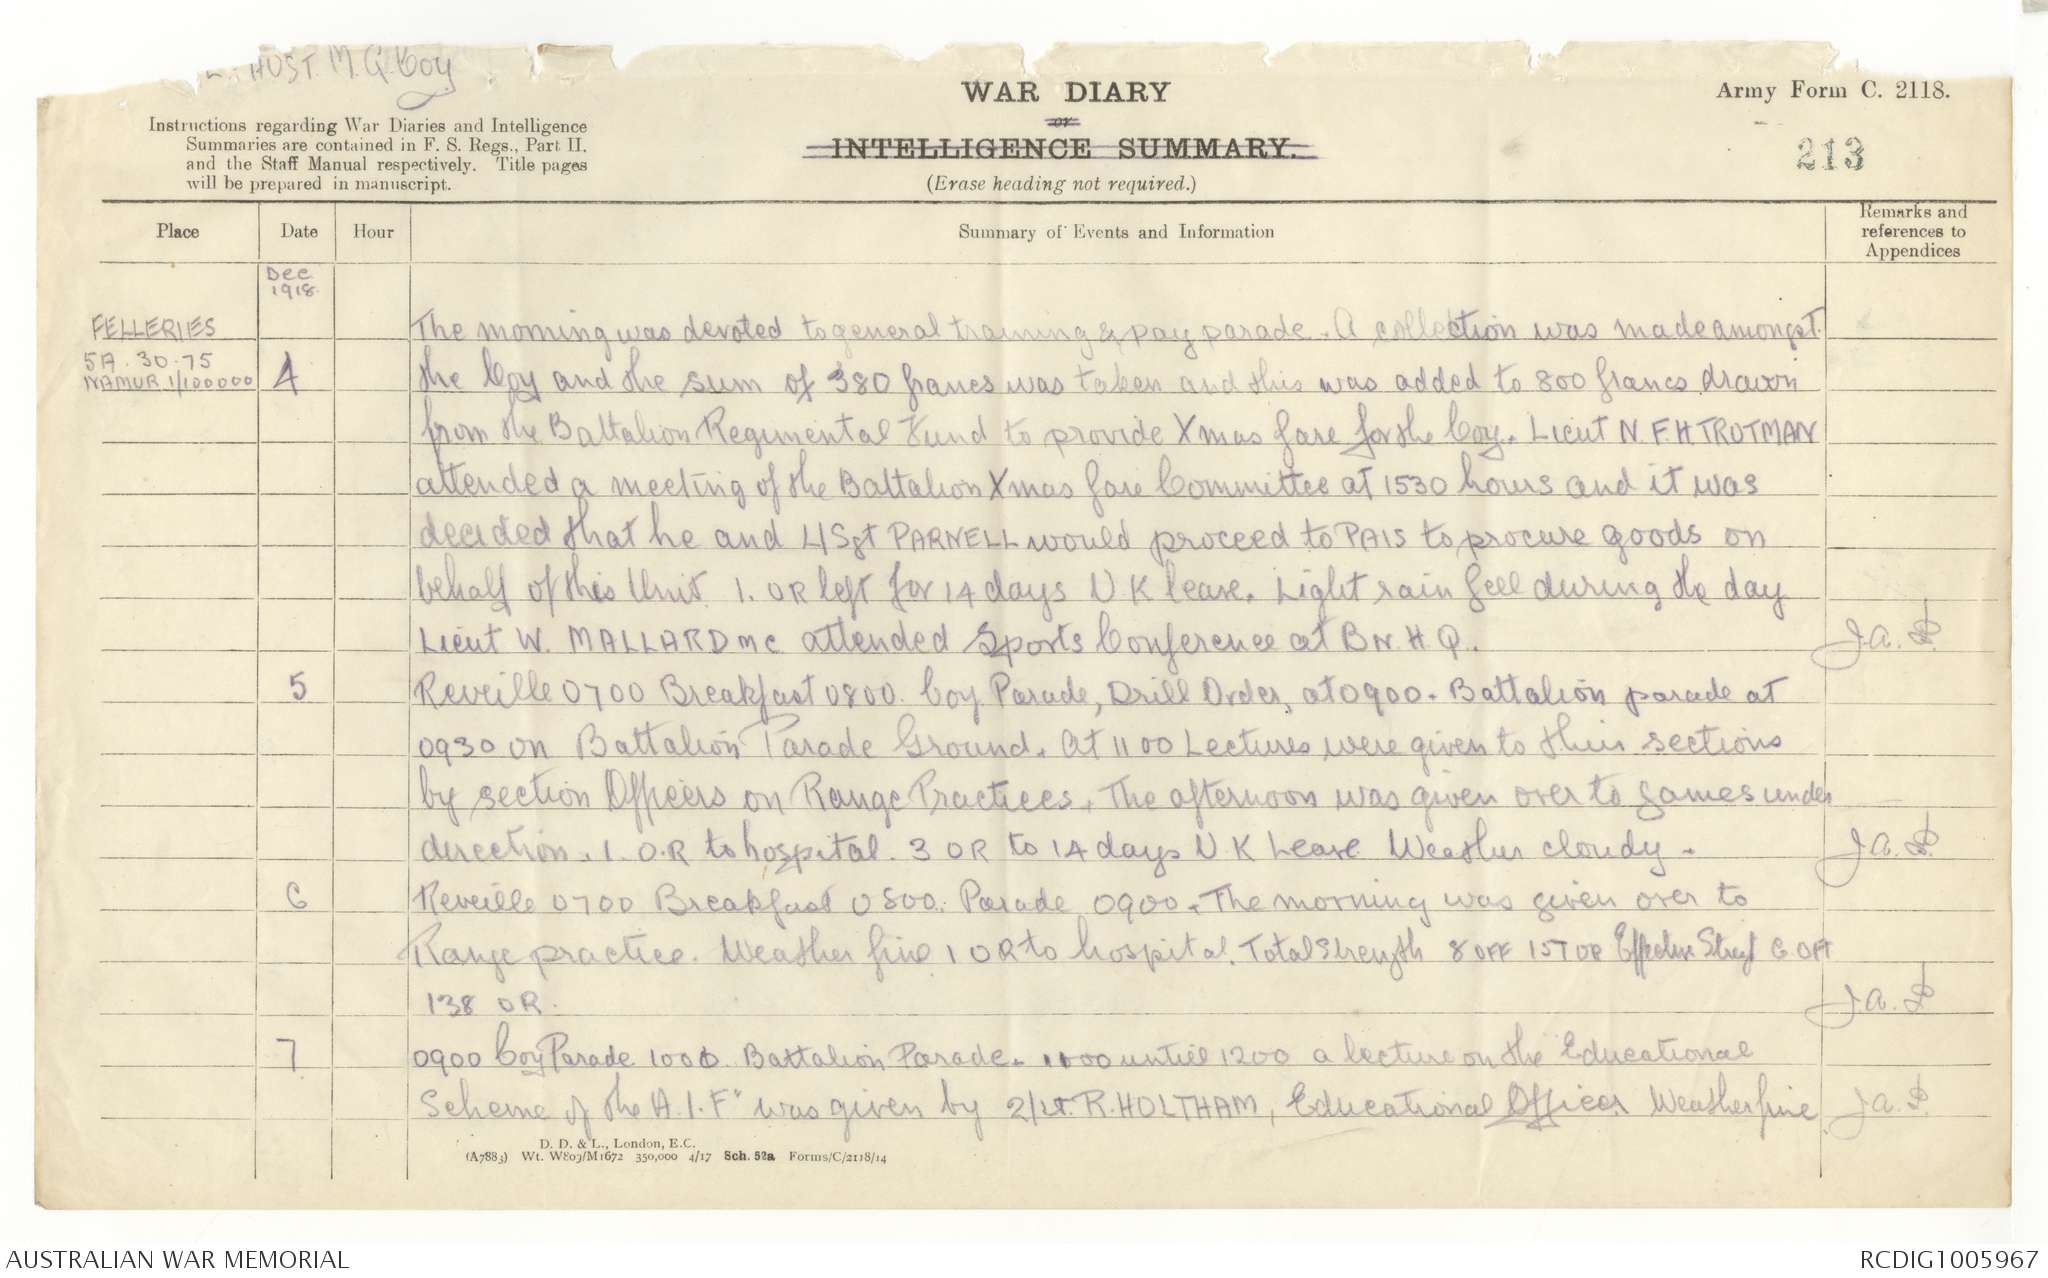 AUST. M.G. Coy
WAR DIARY
or
INTELLIGENCE SUMMARY.
(Erase heading not required.)
Army Form C. 2118.
213
Instructions regarding War Diaries and Intelligence
Summaries are contained in F. S. Regs., Part II.
and the Staff Manual respectively. Title pages
will be prepared in manuscript.
Place Date Hour Summary of Events and Information Remarks and references to Appendices
Dec
1918.
FELLERIES The morning was devoted to general training & pay parade. A collection was made amongst
5A . 30 . 75
NAMUR 1/100000 4 the Coy and the sum of 380 francs was taken and this was added to 800 francs drawn
from the Battalion Regimental Fund to provide Xmas fare for the Coy. Lieut N.F.H TROTMAN
attended a meeting of the Battalion Xmas fare Committee at 1530 hours and it was
decided that he and L/Sgt PARNELL would proceed to PAIS to procure goods on
behalf of this Unit. 1. OR left for 14 days U.K leave. Light rain fell during the day
Lieut W. MALLARD MC attended Sports Conference at BN. H.Q. J.A.
5 Reveille 0700 Breakfast 0800. Coy Parade, Drill Order, at 0900. Battalion parade at
0930 on Battalion Parade Ground. At 1100 Lectures were given to their sections
by section Officers on Range Practices. The afternoon was given over to games under
direction. 1. O.R to hospital. 3 OR to 14 days U K Leave. Weather cloudy. J.A.
6 Reveille 0700 Breakfast 0800. Parade 0900. The morning was given over to
Range practice. Weather fine 1 OR to hospital. Total Strength 8 OFF 157 OR Effective Stren 6 OFF
138 OR. J.A.
7 0900 Coy Parade 1000. Battalion Parade. 1100 until 1200 a lecture on the "Educational
Scheme of the A.I.F" was given by 2/Lt. R. HOLTHAM, Educational Officer. Weather fine J.A.
D. D. & L., London, E.C.
(A7883) Wt. W809/M1672 350,000 4/17 Sch. 52a Forms/C/2118/14
AUSTRALIAN WAR MEMORIAL
RCDIG1005967